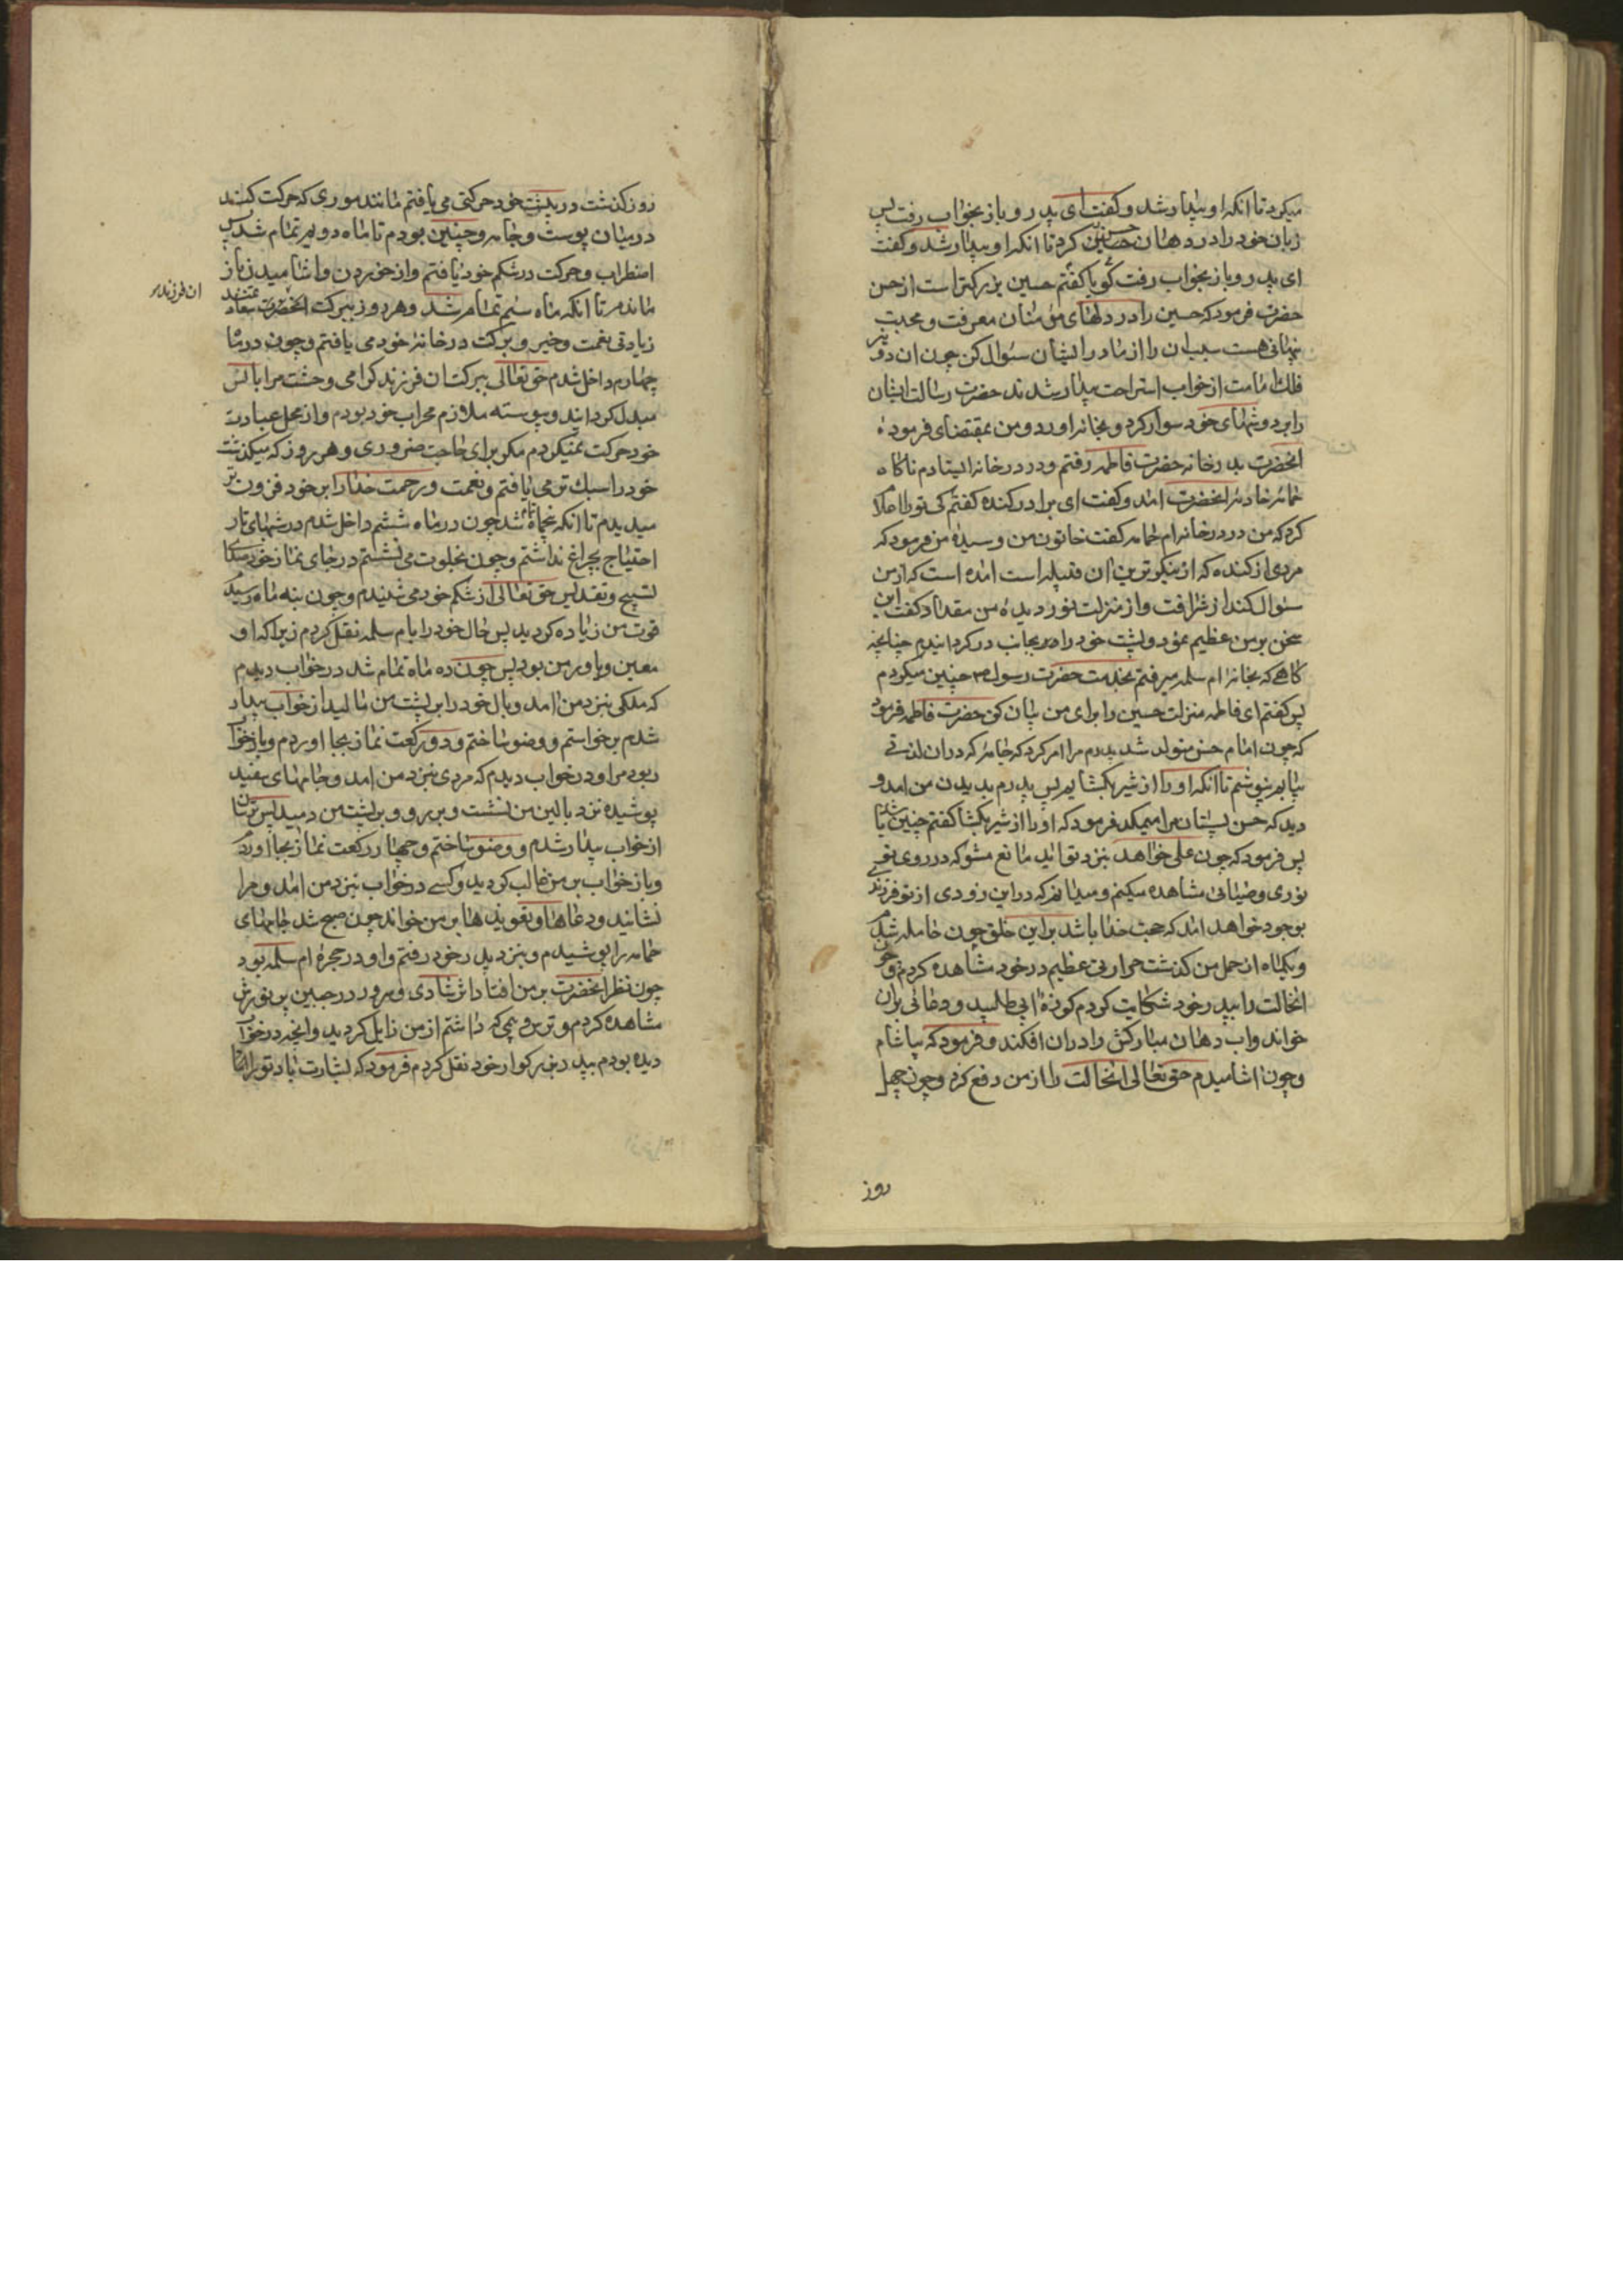 میکرد تا انکه او بیدار شد و کفت ای پدر و باز بخواب رفت پس
زبان خود را در دهان حسین کرد تا انکه او بیدار شد و کفت
ای پدر و باز بخواب رفت کویا کفتم حسین بزرکتر است از حسن
حضرت فرمود که حسین را در دلهای مؤمنان معرفت و محبت
پنهانی هست سبب ان را از مادر ایشان سئوال کن چون ان دو نیر
فلک امامت از خواب استراحت بیدار شدند حضرت رسالت ایشان
را بر دوشهای خود سوار کرد و بخانه اورد و من بمقتضای فرموده
انحضرت بدر خانه حضرت فاطمه رفتم و در در خانه ایستادم ناکاه
حمامه خادمه انحضرت امد و کفت ای برادر کنده کفتم کی تو را اعلام
کرد که من در در خانه ام حمامه کفت خاتون من و سیدهٔ من فرمود که
مردی از کنده که از نیکوترین ان قبیله است امده است که از من
سئوال کند از شرافت و از منزلت نور دیدهٔ من مقداد کفت این
سخن بر من عظیم نمود و پشت خود را بجانب در کردانیدم چنانچه
کاهی که بخانه ام سلمه میرفتم بخدمت حضرت رسول ص چنین میکردم
پس کفتم ای فاطمه منزلت حسین را برای من بیان کن حضرت فاطمه فرمود
که چون امام حسن متولد شد پدرم مرا امر کرد که جامه که دران لذتی
بیابم نپوشم تا انکه او را از شیر بکشایم پس پدرم بدیدن من امد و
دید که حسن پستان مرا میمکد فرمود که او را از شیر بکشا کفتم چنین باشد
پس فرمود که چون علی خواهد بنزد تو اید مانع مشو که در روی تو
نوری و ضیائی مشاهده میکنم و میدانم که در این زودی از تو فرزندی
بوجود خواهد امد که حجت خدا باشد بر این خلق چون حامله شدم
و یکماه از حمل من کذشت حرارتی عظیم در خود مشاهده کردم و چون
انحالت را بپدر خود شکایت کردم کوزهٔ ابی طلبید و دعائی بران
خواند و اب دهان مبارکش را دران افکند و فرمود که بیاشام
و چون اشامیدم حق تعالی انحالت را از من دفع کرد و چون چهل
روز
روز کذشت در پشت خود حرکتی می یافتم مانند موری که حرکت کند
در میان پوست و جامه و چنین بودم تا ماه دویم تمام شد پس
اضطراب و حرکت در شکم خود یافتم و از خوردن و اشامیدن باز
ماندم تا انکه ماه سیم تمام شد و هر روز ببرکت انحضرت سعادتمند
ان فرزند
زیادتی نعمت و خیر و برکت در خانهٔ خود می یافتم و چون در ماه
چهارم داخل شدم حق تعالی ببرکت ان فرزند کرامی وحشت مرا بانس
مبدل کردانید و پیوسته ملازم محراب خود بودم و از محل عبادت
خود حرکت نمیکردم مکر برای حاجت ضروری و هر روز که میکذشت
خود را سبک تر می یافتم و نعمت و رحمت خدا را بر خود فزون تر
میدیدم تا انکه پنجماه تمام شد چون در ماه ششم داخل شدم در شبهای تار
احتیاج بچراغ نداشتم و چون بخلوت می نشستم در جای نماز خود صدای
تسبیح و تقدیس حق تعالی از شکم خود می شنیدم و چون بنه ماه رسید
قوت من زیاده کردید پس حال خود را بام سلمه نقل کردم زیرا که او
معین و یاور من بود پس چون ده ماه تمام شد در خواب دیدم
که ملکی بنزد من امد و بال خود را بر پشت من مالید از خواب بیدار
شدم برخواستم و وضو ساختم و دو رکعت نماز بجا اوردم و باز خواب
ربود مرا و در خواب دیدم که مردی بنزد من امد و جامهای سفید
پوشیده نزد بالین من نشست و بر رو و بر پشت من دمید پس ترسان
از خواب بیدار شدم و وضو ساختم و چهار رکعت نماز بجا اوردم
و باز خواب بر من غالب کردید و کسی در خواب بنزد من امد و مرا
نشانید و دعاها و تعویذها بر من خواند چون صبح شد جامهای
حمامه را پوشیدم و بنزد پدر خود رفتم و او در حجرهٔ ام سلمه بود
چون نظر انحضرت بر من افتاد اثر شادی و سرور در جبین پر نورش
مشاهده کردم و ترس و بیمی که داشتم از من زایل کردید و انچه در خواب
دیده بودم بپدر بزرکوار خود نقل کردم فرمود که بشارت باد تو را